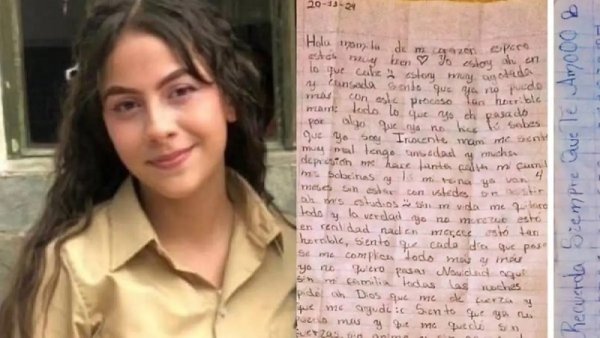 20-11-24
Hola mamita de mi corazón espero
estés muy bien ♡ Yo estoy ah en
lo que cabe estoy muy agotada
y cansada Siento que ya no puedo
más con este proceso tan horrible
mame todo lo que eh pasado
por algo que yo no hice tu sabes
que Yo soy Inocente mami me siento
muy mal tengo ansiedad y mucha
depresión me hace tanta falta mi famil
mis sobrinos y mi ya van 4
meses sin estar con ustedes sin asistir
ah mis estudios sin mi vida me quitaro
todo y la verdad yo no merezco esto
en realidad nadien merece esto tan
horrible, siento que cada día que pasa
se me complica todo más y más
yo no quiero pasar Navidad aqui
sin mi familia todas las noches
pido ah Dios que me de fuerza y
que me ayude Siento que ya no
puedo más y que me quedo sin
fuerzas sin animo
Recuerda Siempre Que Te Amooo